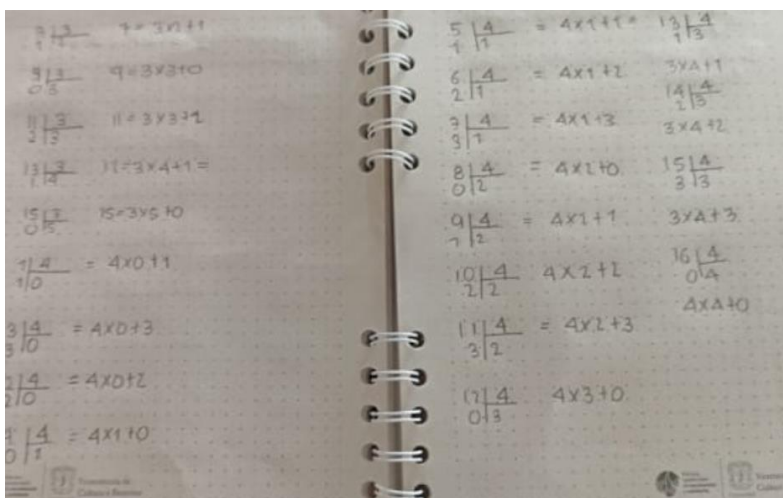 7 = 3
9 | 3
0 | 3
9 = 3x3+0
11 | 3
2 | 3
11 = 3x3+2
13 | 3
1 | 4
15 | 3
0 | 5
15 = 3x5+0
1 | 4
1 | 0
= 4x0+1
3 | 4
3 | 0
= 4x0+3
2 | 4
2 | 0
= 4x0+2
4 | 4
0 | 1
= 4x1+0
5 | 4
1 | 1
= 4x1+1=
6 | 4
2 | 1
= 4x1+2
7 | 4
3 | 1
= 4x1+3
8 | 4
0 | 2
= 4x2+0
9 | 4
1 | 2
= 4x2+1
10 | 4
2 | 2
4x2+2
11 | 4
3 | 2
= 4x2+3
12 | 4
0 | 3
4x3+0
13 | 4
1 | 3
3x4+1
14 | 4
2 | 3
3x4+2
15 | 4
3 | 3
3x4+3
16 | 4
0 | 4
4x4+0